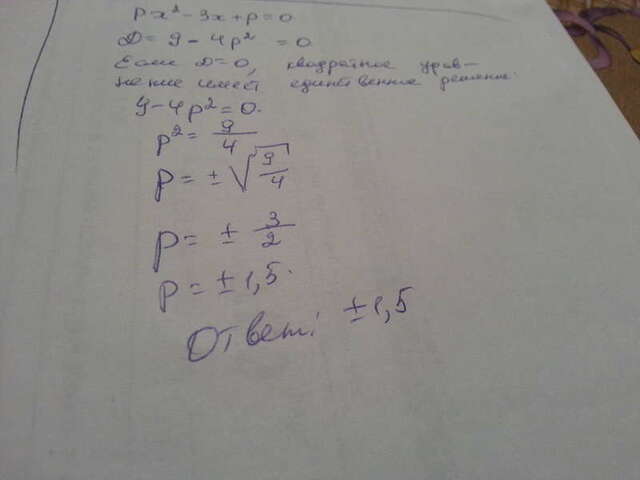 px² - 3x + p = 0
D = 9 - 4p² = 0
Если D = 0, квадратное урав-
нение имеет единственное решение.
9 - 4p² = 0.
p² = 9/4
p = ± √(9/4)
p = ± 3/2
p = ± 1,5.
Ответ: ± 1,5